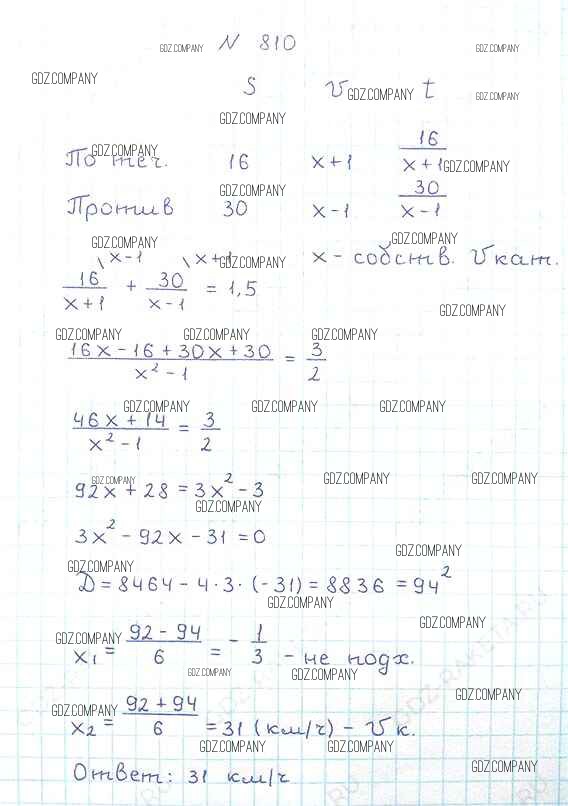 N 810
GDZ.COMPANY GDZ.COMPANY
GDZ.COMPANY
S V t
GDZ.COMPANY GDZ.COMPANY
GDZ.COMPANY
По теч. 16 x+1 16/(x+1)
GDZ.COMPANY GDZ.COMPANY
Против 30 x-1 30/(x-1)
GDZ.COMPANY
GDZ.COMPANY GDZ.COMPANY
\x-1 \x+1 x - собств. V кат.
GDZ.COMPANY
16/(x+1) + 30/(x-1) = 1,5
GDZ.COMPANY
GDZ.COMPANY GDZ.COMPANY GDZ.COMPANY
(16x-16+30x+30)/(x²-1) = 3/2
GDZ.COMPANY GDZ.COMPANY GDZ.COMPANY
(46x+14)/(x²-1) = 3/2
GDZ.COMPANY GDZ.COMPANY GDZ.COMPANY
92x+28=3x²-3
GDZ.COMPANY
3x²-92x-31=0
GDZ.COMPANY
GDZ.COMPANY
D=8464-4·3·(-31)=8836=94²
GDZ.COMPANY
GDZ.COMPANY
GDZ.COMPANY
x₁ = (92-94)/6 = -1/3 - не подх.
GDZ.COMPANY GDZ.COMPANY
GDZ.COMPANY
GDZ.COMPANY
x₂ = (92+94)/6 = 31 (км/ч) - V к.
GDZ.COMPANY GDZ.COMPANY
GDZ.COMPANY
Ответ: 31 км/ч